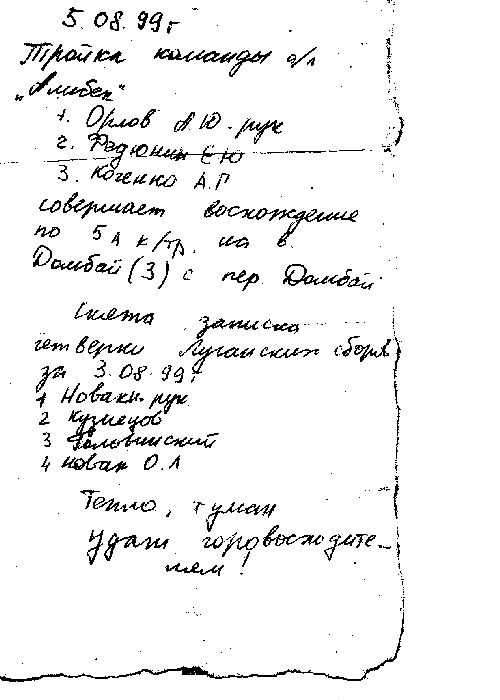 5.08.99г
Тройка команды а/л
„Алибек"
1. Орлов А.Ю. рук
2. Федюнин Е Ю
3. Когенко А.Г
совершает восхождение
по 5А к/тр. на в.
Домбай (3) с пер. Домбай
Снята записка
четверки Луганских сборов
за 3.08.99г
1 Новак. рук
2 Кузнецов
3 Головинский
4 Новак О.А
Тепло, туман
Удачи горовосходите-
лям!